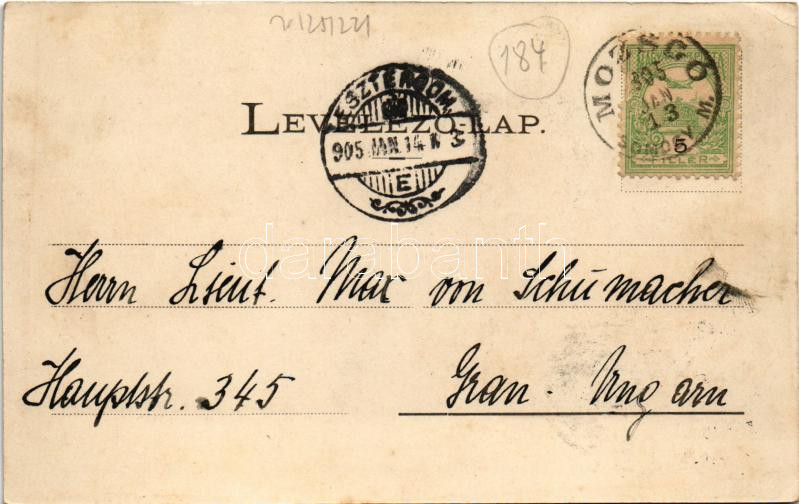 21201221
184
LEVELEZŐ-LAP.
ESZTERGOM
905 JAN. 14
E
MOZSGÓ
905
JAN
13
SOMOGY M.
5
FILLÉR
darabanth
Herrn Lieut. Max von Schumacher
Hauptstr. 345
Gran - Ungarn